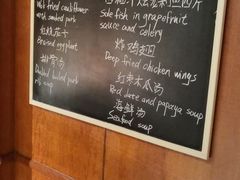 fried cauliflower
with smoked pork
红烧茄子
Braised eggplant
排骨汤
pork
rib soup
Sole fish in grapefruit
sauce and celery
炸鸡翅
Deep fried chicken wings
红枣木瓜汤
Red date and papaya soup
海鲜汤
Seafood soup